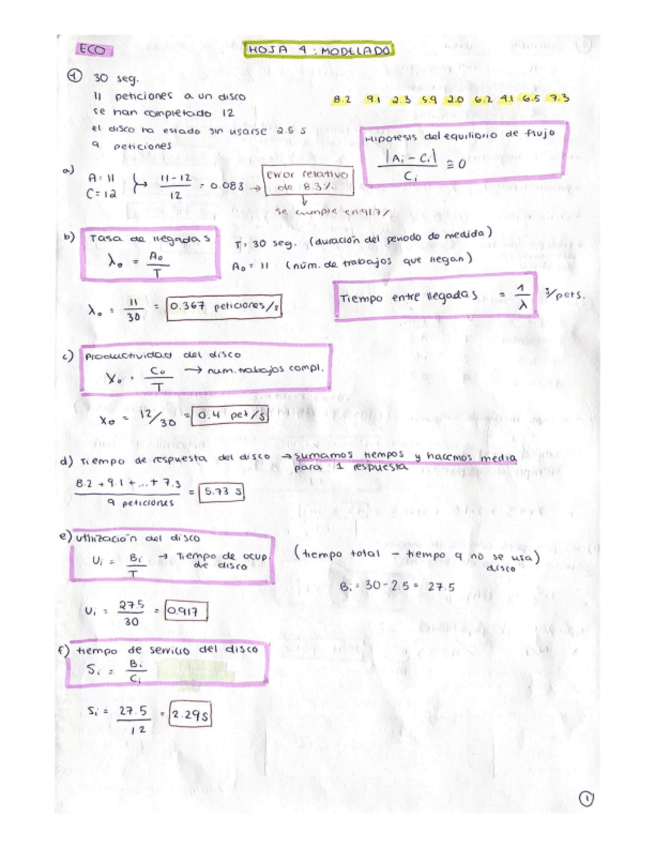 ECO
HOJA 4: MODELADO
1 30 seg.
11 peticiones a un disco
se han completado 12
el disco ha estado sin usarse 2.5 s
9 peticiones
8.2 9.1 2.3 5.9 2.0 6.2 4.1 6.5 7.3
Hipotesis del equilibrio de flujo
|Ai - Ci| / Ci ≅ 0
a) A = 11
C = 12
11-12 / 12 = 0.083 → Error relativo
de 8.3%.
↓
se cumple en 91.7%
b) Tasa de llegadas
λo = Ao / T
T = 30 seg. (duración del periodo de medida)
Ao = 11 (núm. de trabajos que llegan)
λo = 11 / 30 = 0.367 peticiones/s
Tiempo entre llegadas = 1 / λ s/pets.
c) Productividad del disco
Xo = Co / T → num. trabajos compl.
Xo = 12/30 = 0.4 pet/s
d) Tiempo de respuesta del disco → sumamos tiempos y hacemos media
para 1 respuesta
8.2 + 9.1 + ... + 7.3 / 9 peticiones = 5.73 s
e) Utilización del disco
Ui = Bi / T → Tiempo de ocup.
de disco
(tiempo total - tiempo q no se usa)
disco
Bi = 30 - 2.5 = 27.5
Ui = 27.5 / 30 = 0.917
f) tiempo de servicio del disco
Si = Bi / Ci
Si = 27.5 / 12 = 2.29 s
1